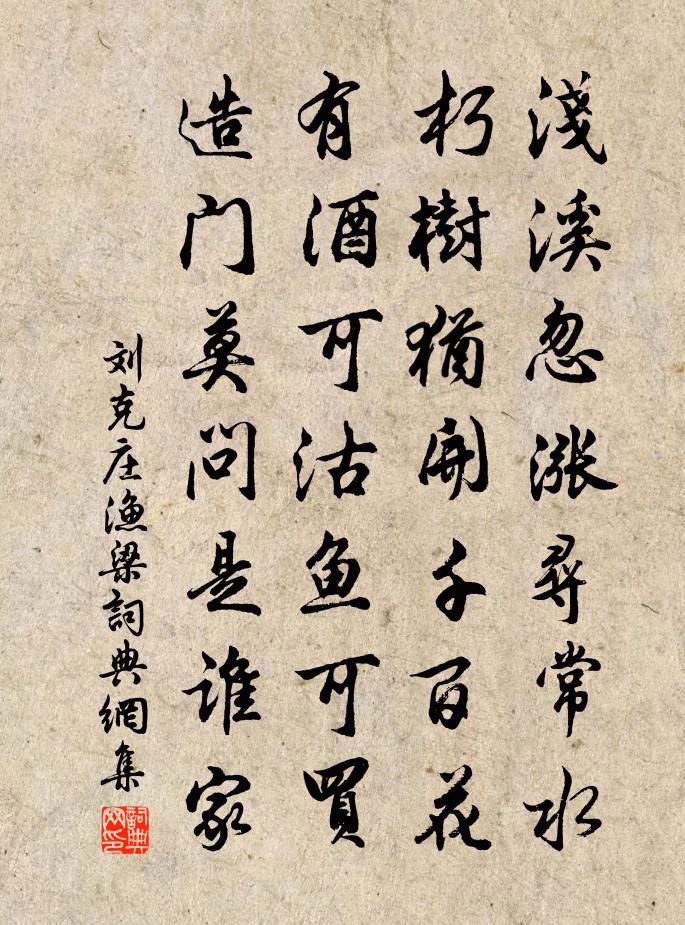 淺溪忽漲尋常水
朽樹猶開千百花
有酒可沽鱼可買
造门莫问是谁家
刘克庄漁梁詞典網集
詞典网印